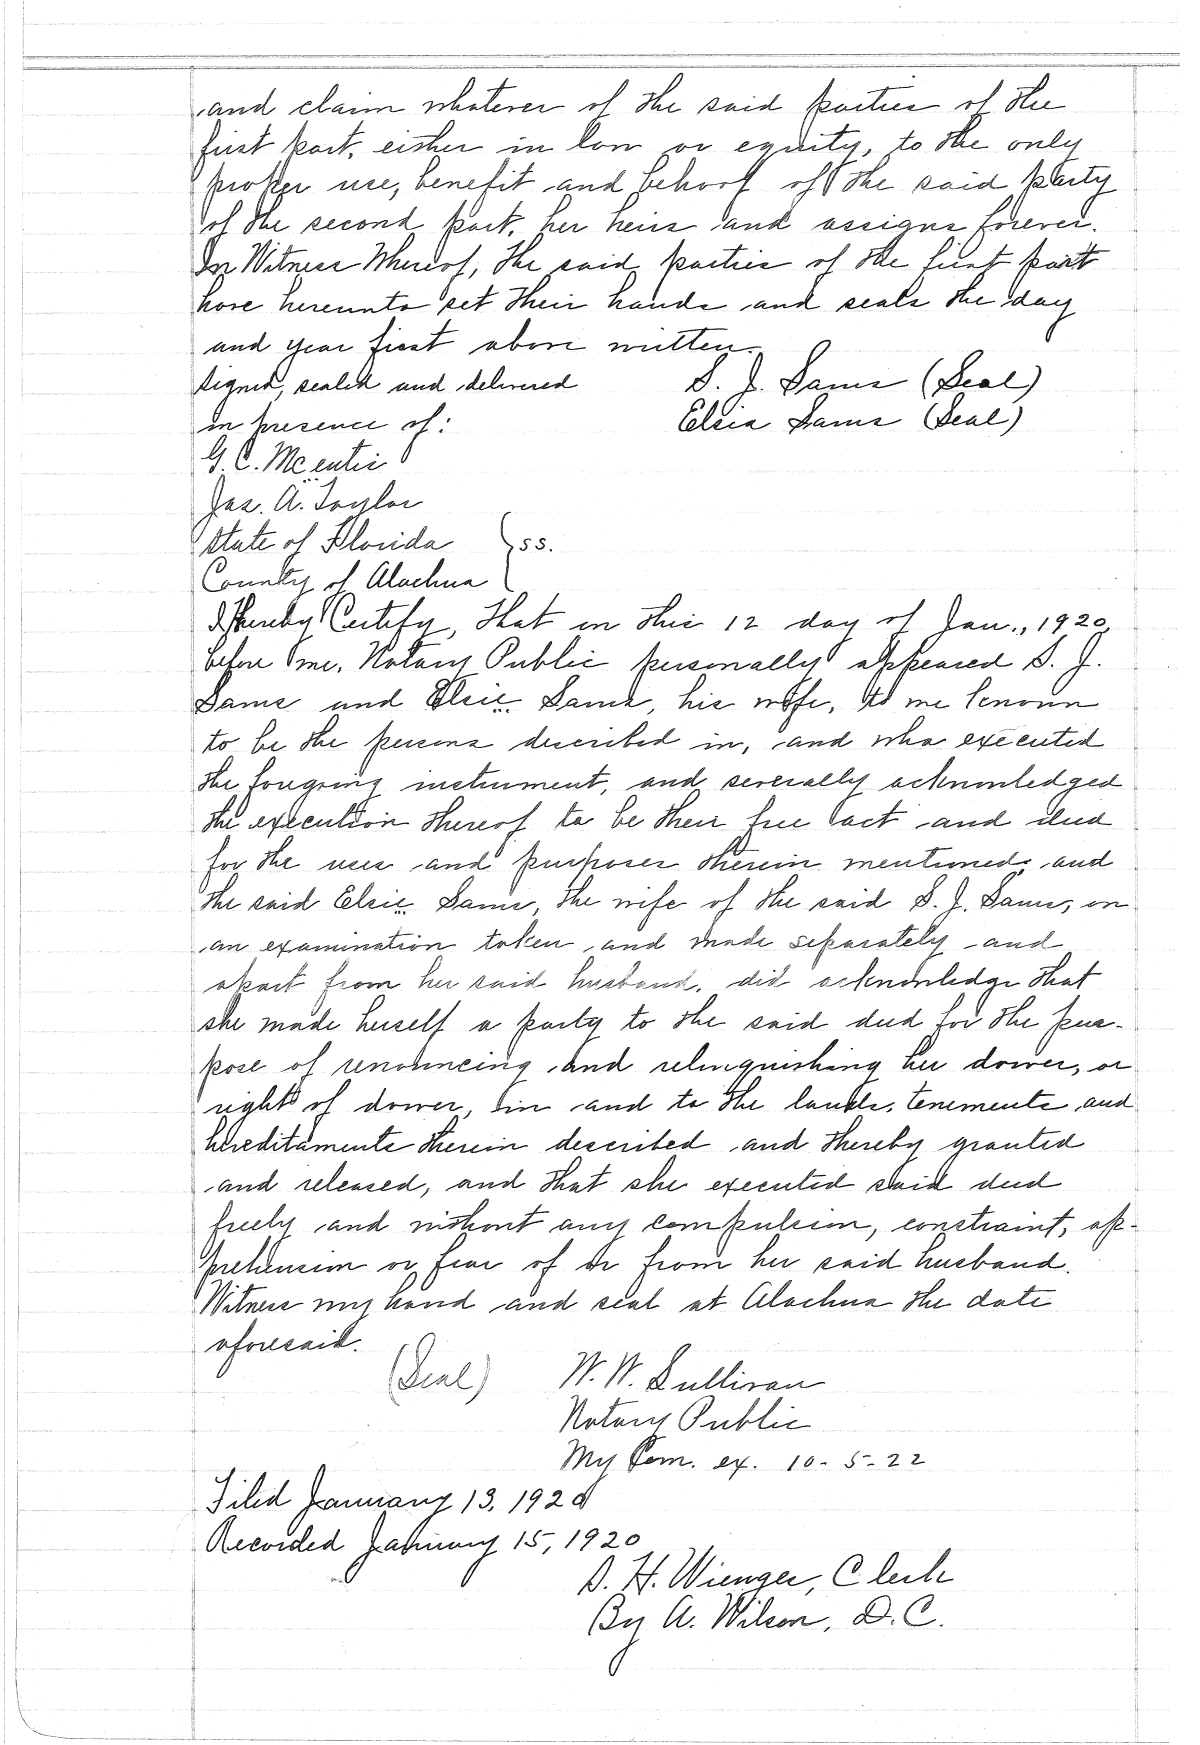 and claim whatever of the said parties of the
first part, either in law or equity, to the only
proper use, benefit and behoof of the said party
of the second part, her heirs and assigns forever.
In Witness Whereof, the said parties of the first part
have hereunto set their hands and seals the day
and year first above written.
Signed, sealed and delivered S. J. Sams (Seal)
in presence of: Elsie Sams (Seal)
G. C. McEntie
Jas. A. Taylor
State of Florida } ss.
County of Alachua
I Hereby Certify, That on this 12 day of Jan., 1920,
before me, Notary Public personally appeared S. J.
Sams and Elsie Sams, his wife, to me known
to be the persons described in, and who executed
the foregoing instrument, and severally acknowledged
the execution thereof to be their free act and deed
for the uses and purposes therein mentioned; and
the said Elsie Sams, the wife of the said S. J. Sams, on
an examination taken and made separately and
apart from her said husband, did acknowledge that
she made herself a party to the said deed for the pur-
pose of renouncing and relinquishing her dower, or
right of dower, in and to the lands, tenements and
hereditaments therein described and thereby granted
and released, and that she executed said deed
freely and without any compulsion, constraint, ap-
prehension or fear of or from her said husband.
Witness my hand and seal at Alachua the date
aforesaid.
(Seal) W. W. Sullivan
Notary Public
My Com. ex. 10-5-22
Filed January 13, 1920
Recorded January 15, 1920
S. H. Wienges, Clerk
By A. Wilson, D.C.